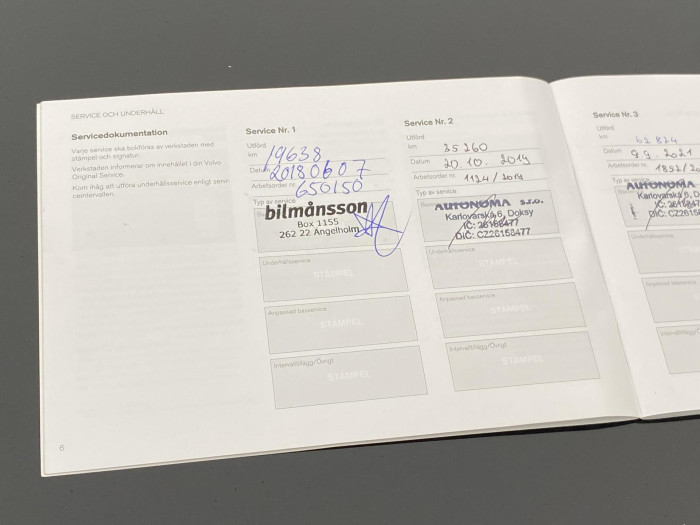 SERVICE OCH UNDERHÅLL
Servicedokumentation
Varje service ska bokföras av verkstaden med
stämpel och signatur.
Verkstaden informerar om innehållet i din Volvo
Original Service.
Kom ihåg att utföra underhållsservice enligt
6
Service Nr. 1
Utförd
km 19638
Datum 20180607
Arbetsorder nr. 650150
Typ av service
bilmånsson
Box 1155
262 22 Ängelholm
Underhållsservice
STÄMPEL
Anpassad basservice
STÄMPEL
Intervalltillägg/Övrigt
STÄMPEL
Service Nr. 2
Utförd
km 35 260
Datum 20.10. 2019
Arbetsorder nr. 1124/2019
Typ av service
AUTONOMA s.r.o.
Karlovarská 6, Doksy
IČ: 26158477
DIČ: CZ26158477
Underhållsservice
STÄMPEL
Anpassad basservice
STÄMPEL
Intervalltillägg/Övrigt
STÄMPEL
Service Nr. 3
Utförd
km 62 824
Datum 9.9. 2021
Arbetsorder nr.
Typ av
AUTONOMA
Karlovarská 6, D
IČ: 2615847
DIČ: CZ261584